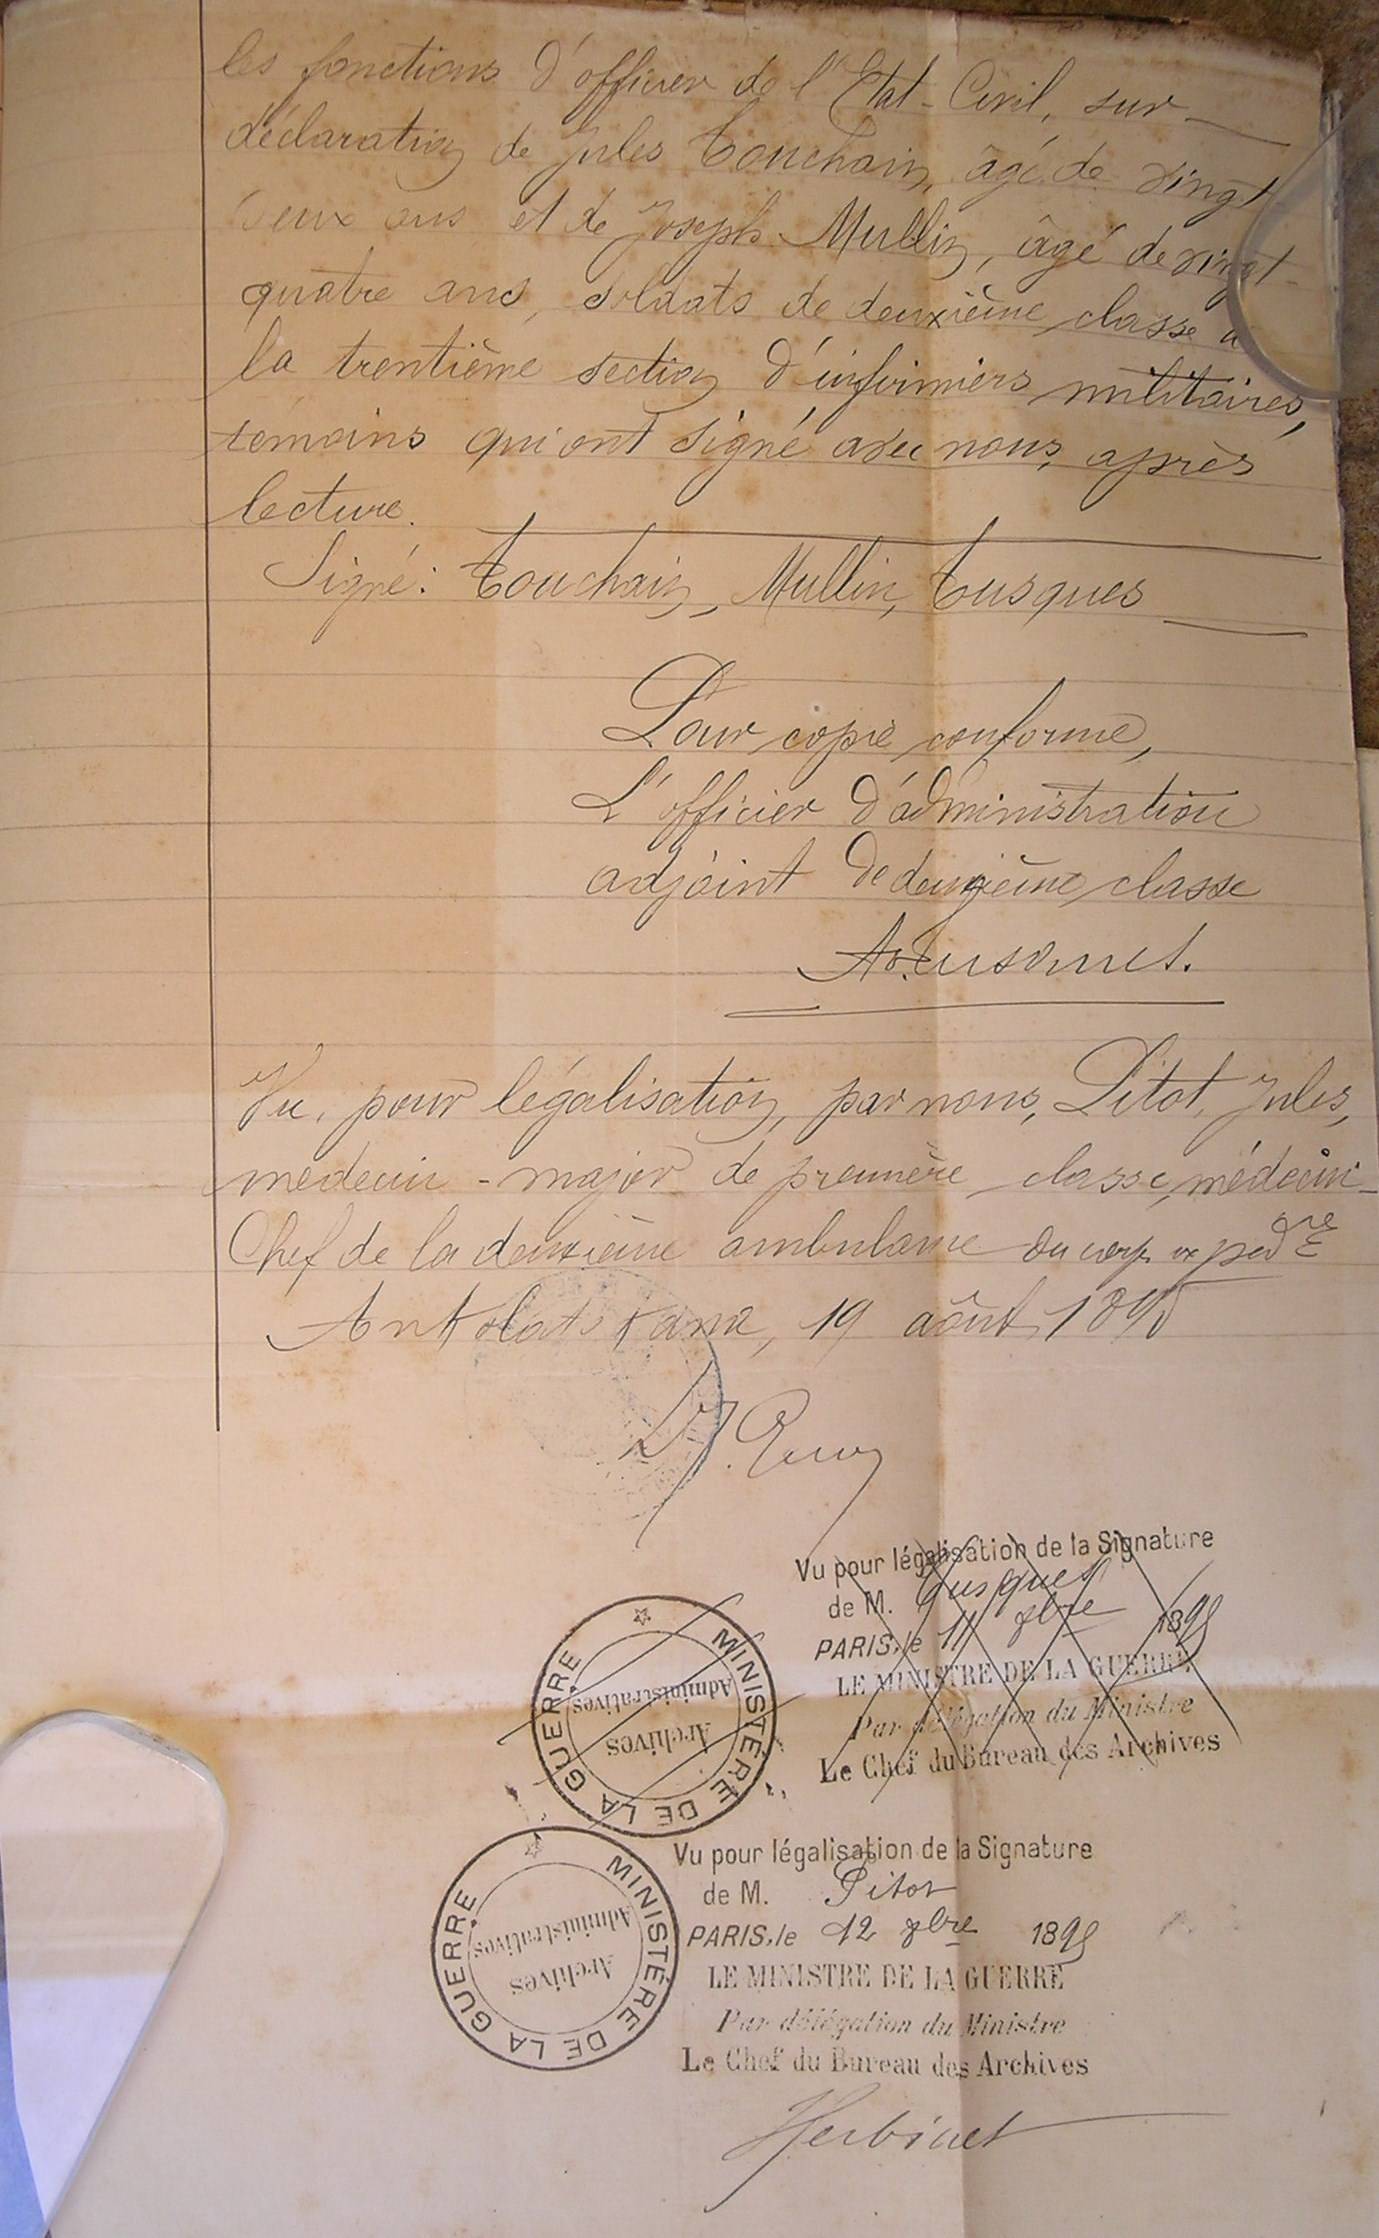 les fonctions d'officier de l'Etat-Civil, sur
déclaration de Jules Touchain, âgé de vingt
deux ans et de Joseph Mullin, âgé de vingt-
quatre ans, soldats de deuxième classe à
la trentième section d'infirmiers militaires,
témoins qui ont signé avec nous, après
lecture.
Signé: Touchain, Mullin, Tusques
Pour copie conforme,
L'officier d'administration
adjoint de deuxième classe
Vu, pour légalisation, par nous, Pitot, Jules,
médecin-major de première classe, médecin-
Chef de la deuxième ambulance du corps expédre
19 août 1895
Vu pour légalisation de la Signature
de M. Tusques
PARIS, le 11 9bre 1895
LE MINISTRE DE LA GUERRE
Par délégation du Ministre
Le Chef du Bureau des Archives
MINISTÈRE DE LA GUERRE
Archives
Administratives
Vu pour légalisation de la Signature
de M. Pitot
PARIS, le 12 9bre 1895
LE MINISTRE DE LA GUERRE
Par délégation du Ministre
Le Chef du Bureau des Archives
MINISTÈRE DE LA GUERRE
Archives
Administratives
Herbinet